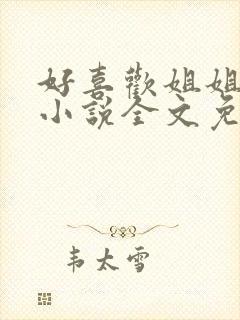 好喜歡姐姐
小說全文免
韦太雪